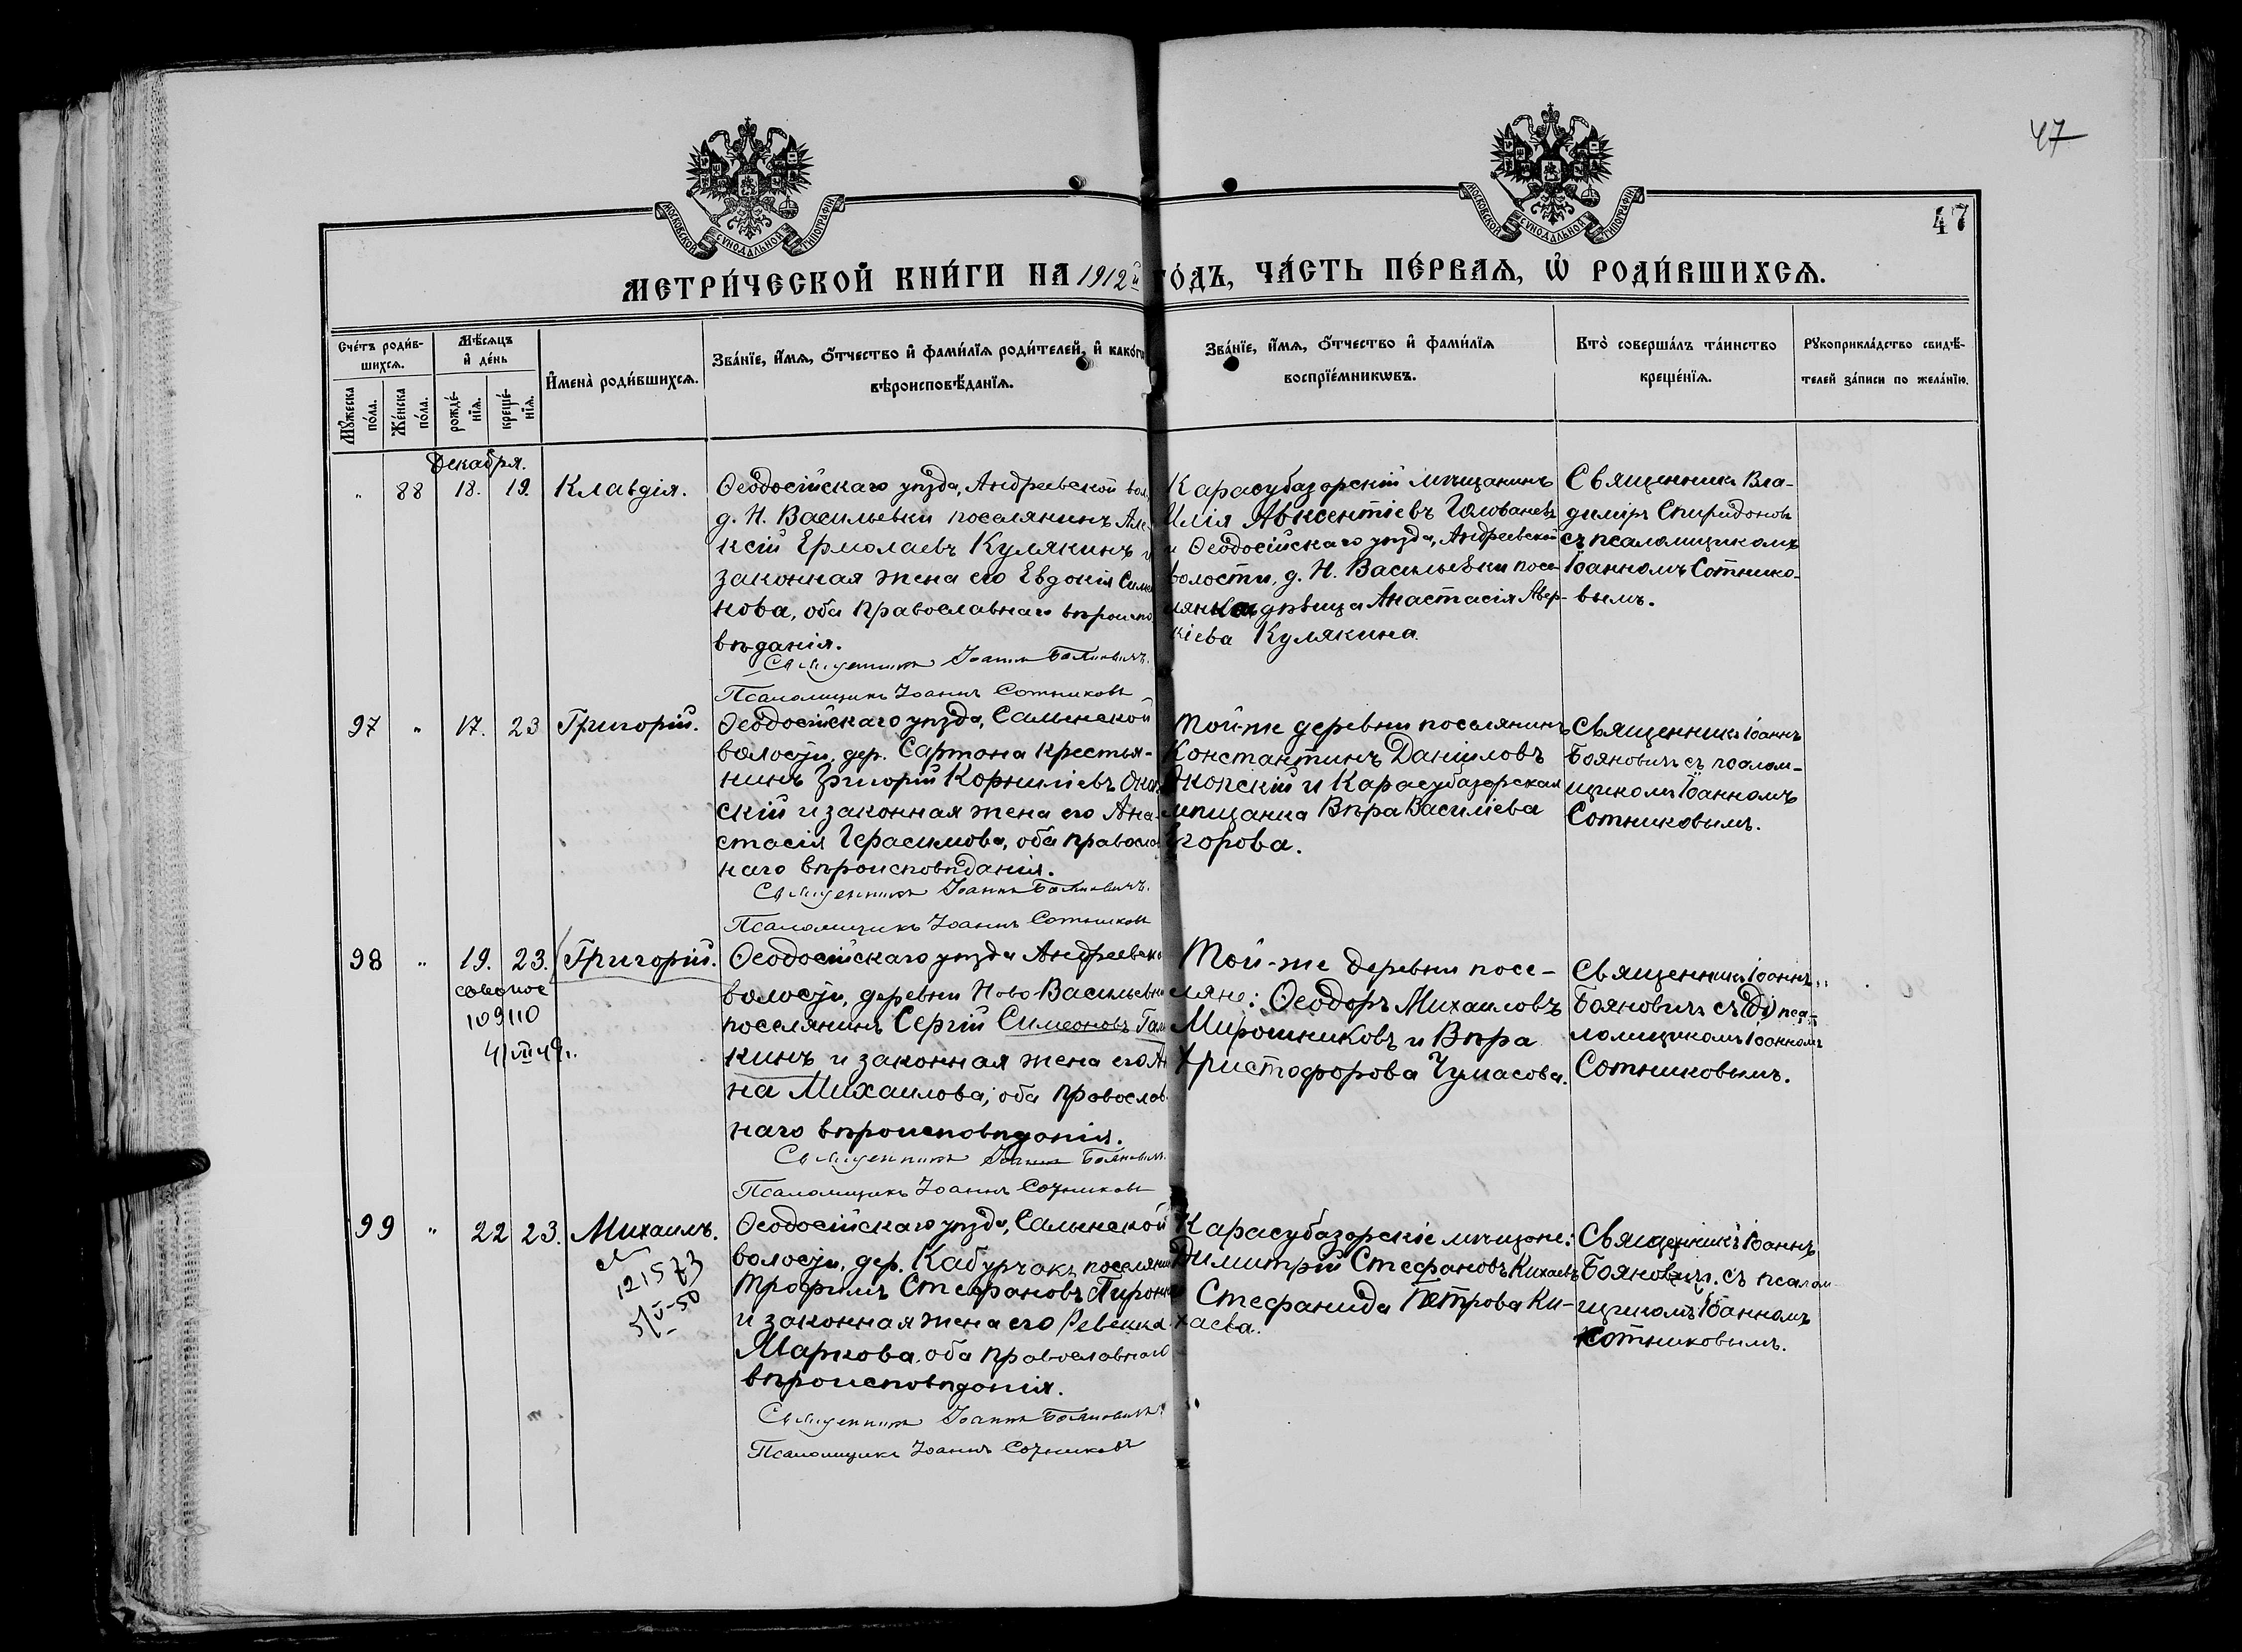 47
47
МОСКОВСКОЙ СѴНОДАЛЬНОЙ ТИПОГРАФІИ
МОСКОВСКОЙ СѴНОДАЛЬНОЙ ТИПОГРАФІИ
МЕТРИ́ЧЕСКОЙ КНИ́ГИ НА 1912й ГО́ДЪ, ЧА́СТЬ ПЕ́РВАѦ, Ѡ҆ РОДИ́ВШИХСѦ.
Сче́тъ роди́в-
шихсѧ.
Мѣ́сѧцъ
и҆ де́нь
И҆мена̀ роди́вшихсѧ.
Зва́нїе, и҆́мѧ, ѻ҆́тчество и҆ фами́лїѧ роди́телей, и҆ како́гѡ
вѣроисповѣ́данїѧ.
Зва́нїе, и҆́мѧ, ѻ҆́тчество и҆ фами́лїѧ
воспрїе́мникѡвъ.
Кто̀ соверша́лъ та́инство
креще́нїѧ.
Рꙋкоприкла́дство свидѣ́-
телей за́писи по жела́нїю.
Мꙋ́жеска
по́ла.
Же́нска
по́ла.
рожде́-
нїѧ.
креще́-
нїѧ.
Декабря.
" 88 18. 19. Клавдія.
Ѳеодосійскаго уѣзда, Андреевской вол.
д. Н. Васильевки поселянинъ Але-
ксій Ермолаевъ Кулякинъ и
законная жена его Евдокія Симо
нова, оба православнаго вѣроиспо
вѣданія.
Священникъ Іоаннъ Бояновичъ.
Псаломщикъ Іоаннъ Сотниковъ
Карасубазорскій мѣщанинъ
Илія Авксентіевъ Голованевъ
и Ѳеодосійскаго уѣзда, Андреевской
волости, д. Н. Васильевки посе-
лянка дѣвица Анастасія Авер-
кіева Кулякина.
Священникъ Вла-
димiръ Спиридоновъ
съ псаломщикомъ
Іоанномъ Сотнико-
вымъ.
97 " 17. 23 Григорій.
Ѳеодосійскаго уѣзда, Салынской
волости, дер. Сартона крестья-
нинъ Григорій Корниліевъ Окоп
скій и законная жена его Ана-
стасія Герасимова, оба правосла
наго вѣроисповѣданія.
Священникъ Іоаннъ Бояновичъ.
Псаломщикъ Іоаннъ Сотниковъ
Той-же деревни поселянинъ
Константинъ Даніиловъ
Окопскій и Карасубазорская
мѣщанка Вѣра Василіева
Егорова.
Священникъ Іоаннъ
Бояновичъ съ псалом-
щикомъ Іоанномъ
Сотниковымъ.
98 " 19. 23. Григорій.
109110
4/VIII 49г.
Ѳеодосійскаго уѣзда Андреевско
волости, деревни Ново-Васильевки
поселянинъ Сергій Симеоновъ Гал
кинъ и законная жена его Ан
на Михаилова, оба православ
наго вѣроисповѣданія.
Священникъ Іоаннъ Бояновичъ.
Псаломщикъ Іоаннъ Сотниковъ
Той-же деревни посе-
ляне: Ѳеодоръ Михаиловъ
Мирошниковъ и Вѣра
Христофорова Чумасова.
Священникъ Іоаннъ
Бояновичъ съ пса-
ломщикомъ Іоанномъ
Сотниковымъ.
99 " 22 23. Михаилъ.
121573
5/V-50
Ѳеодосійскаго уѣзда, Салынской
волости, дер. Кабурчакъ поселянин
Трофимъ Стефановъ
и законная жена его Ревекка
Маркова, оба православнаго
вѣроисповѣданія.
Священникъ Іоаннъ Бояновичъ
Псаломщикъ Іоаннъ Сотниковъ
Карасубазорскіе мѣщане:
Димитрій Стефановъ Кихаевъ
Стефанида Петрова Ки-
хаева.
Священникъ Іоаннъ
Бояновичъ. съ псалом
щикомъ Іоанномъ
Сотниковымъ.